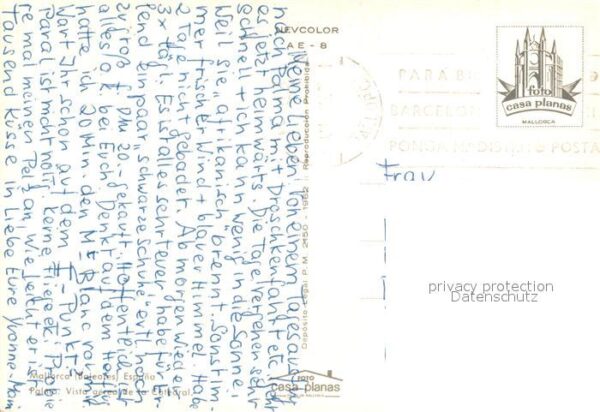 Meine Lieben, von einem Tagesausflug
nach mit Droschkenfahrt etc. geht
es jetzt heimwärts. Die Tage vergehen sehr
schnell + ich kann wenig in die Sonne,
weil sie „afrikanisch" brennt. Sonst im-
mer frischer Wind + blauer Himmel. Habe
2 Tage nicht gebadet. Ab morgen wieder
3 x tägl. Es ist alles sehr teuer, habe für
ein paar „schwarze Schuhe" evtl. schon
zu groß f. DM 20.- gekauft. Hoffentlich ist
alles o.k. bei Euch. Denkt auf dem
hatte ich 20 Min. den M. Blanc vor mir
Wart Ihr schon auf dem I-Punkt?
ist nicht nötig, keine Probie-
re mal meinen Pelz an, wie leicht er ist
Tausend Küsse in Liebe Eure Yvonne-Mami
NEVCOLOR
AE - 8
Reproducción Prohibida
Depósito Legal P. M. 2150 - 1962
foto
casa planas
MALLORCA
PARA
BARCELON
PONGA DISTRITO POSTA
Frau
privacy protection
Datenschutz
Mallorca (Baleares) España
Palma: Vista aérea de la Catedral
FOTO
casa planas